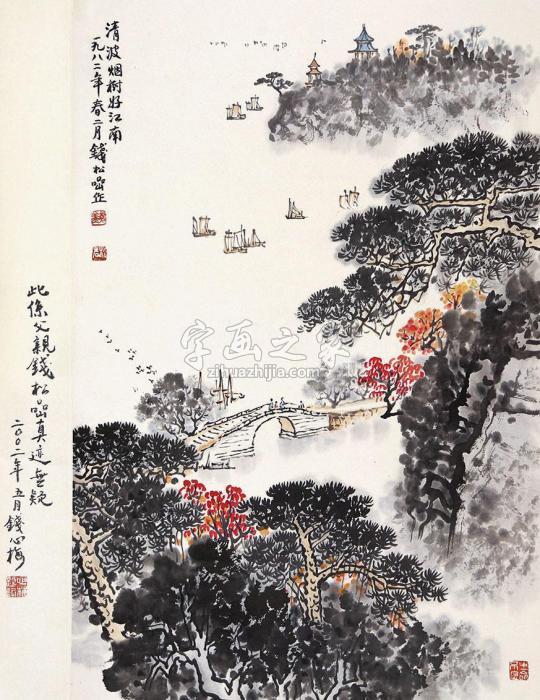 清波烟树好江南
一九八二年春二月錢松嵒作
此係父親錢松嵒真迹無疑
二〇〇二年五月錢心梅
字画之家
zihuazhijia.com